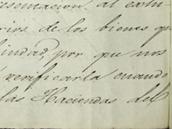 esentacion. al estu
rios de los bienes q
linda, por que nos
verificarla cuando
las Haciendas del